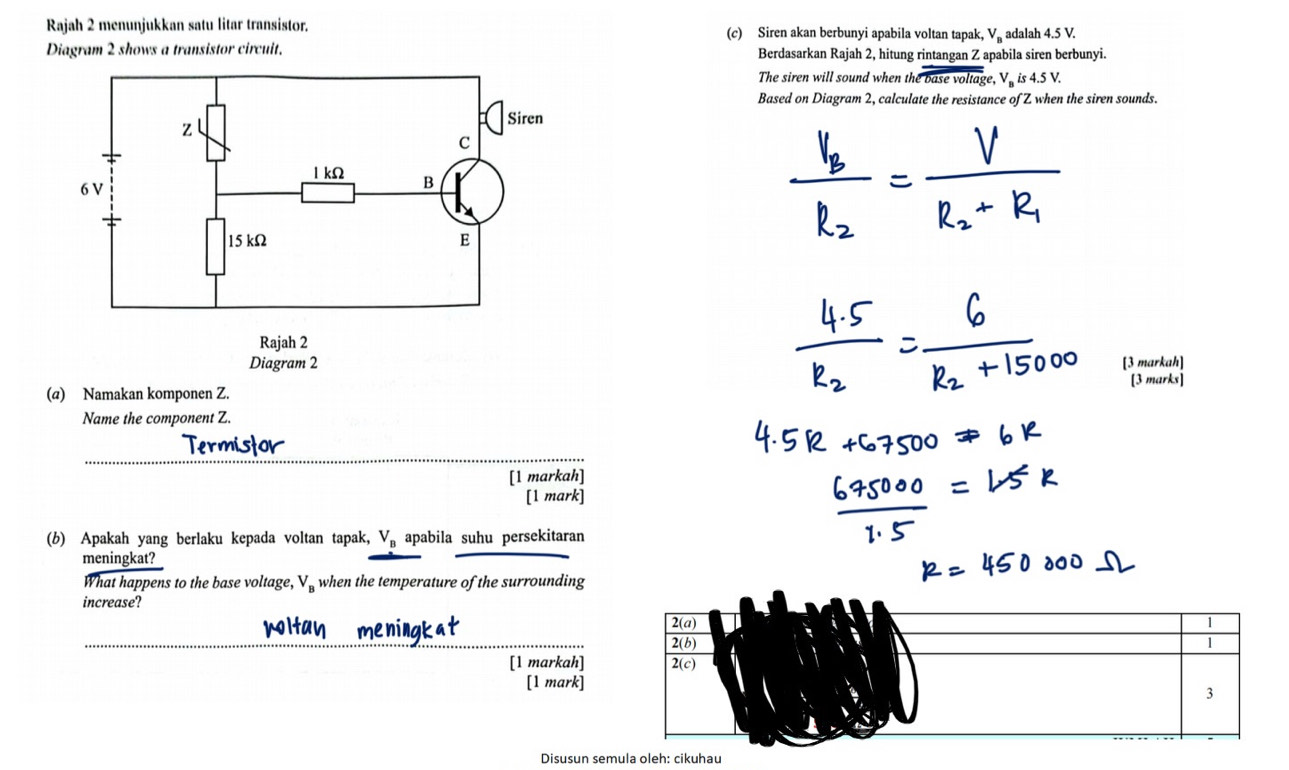 Rajah 2 menunjukkan satu litar transistor.
Diagram 2 shows a transistor circuit.
Z
Siren
C
1 kΩ
B
6 V
15 kΩ
E
Rajah 2
Diagram 2
(a) Namakan komponen Z.
Name the component Z.
Termistor
[1 markah]
[1 mark]
(b) Apakah yang berlaku kepada voltan tapak, V_B apabila suhu persekitaran
meningkat?
What happens to the base voltage, V_B when the temperature of the surrounding
increase?
voltan meningkat
[1 markah]
[1 mark]
(c) Siren akan berbunyi apabila voltan tapak, V_B adalah 4.5 V.
Berdasarkan Rajah 2, hitung rintangan Z apabila siren berbunyi.
The siren will sound when the base voltage, V_B is 4.5 V.
Based on Diagram 2, calculate the resistance of Z when the siren sounds.
V_B / R_2 = V / R_2 + R_1
4.5 / R_2 = 6 / R_2 + 15000
[3 markah]
[3 marks]
4.5R + 67500 = 6R
675000 / 1.5 = 1.5 R
R = 450 000 Ω
2(a) 1
2(b) 1
2(c) 3
Disusun semula oleh: cikuhau